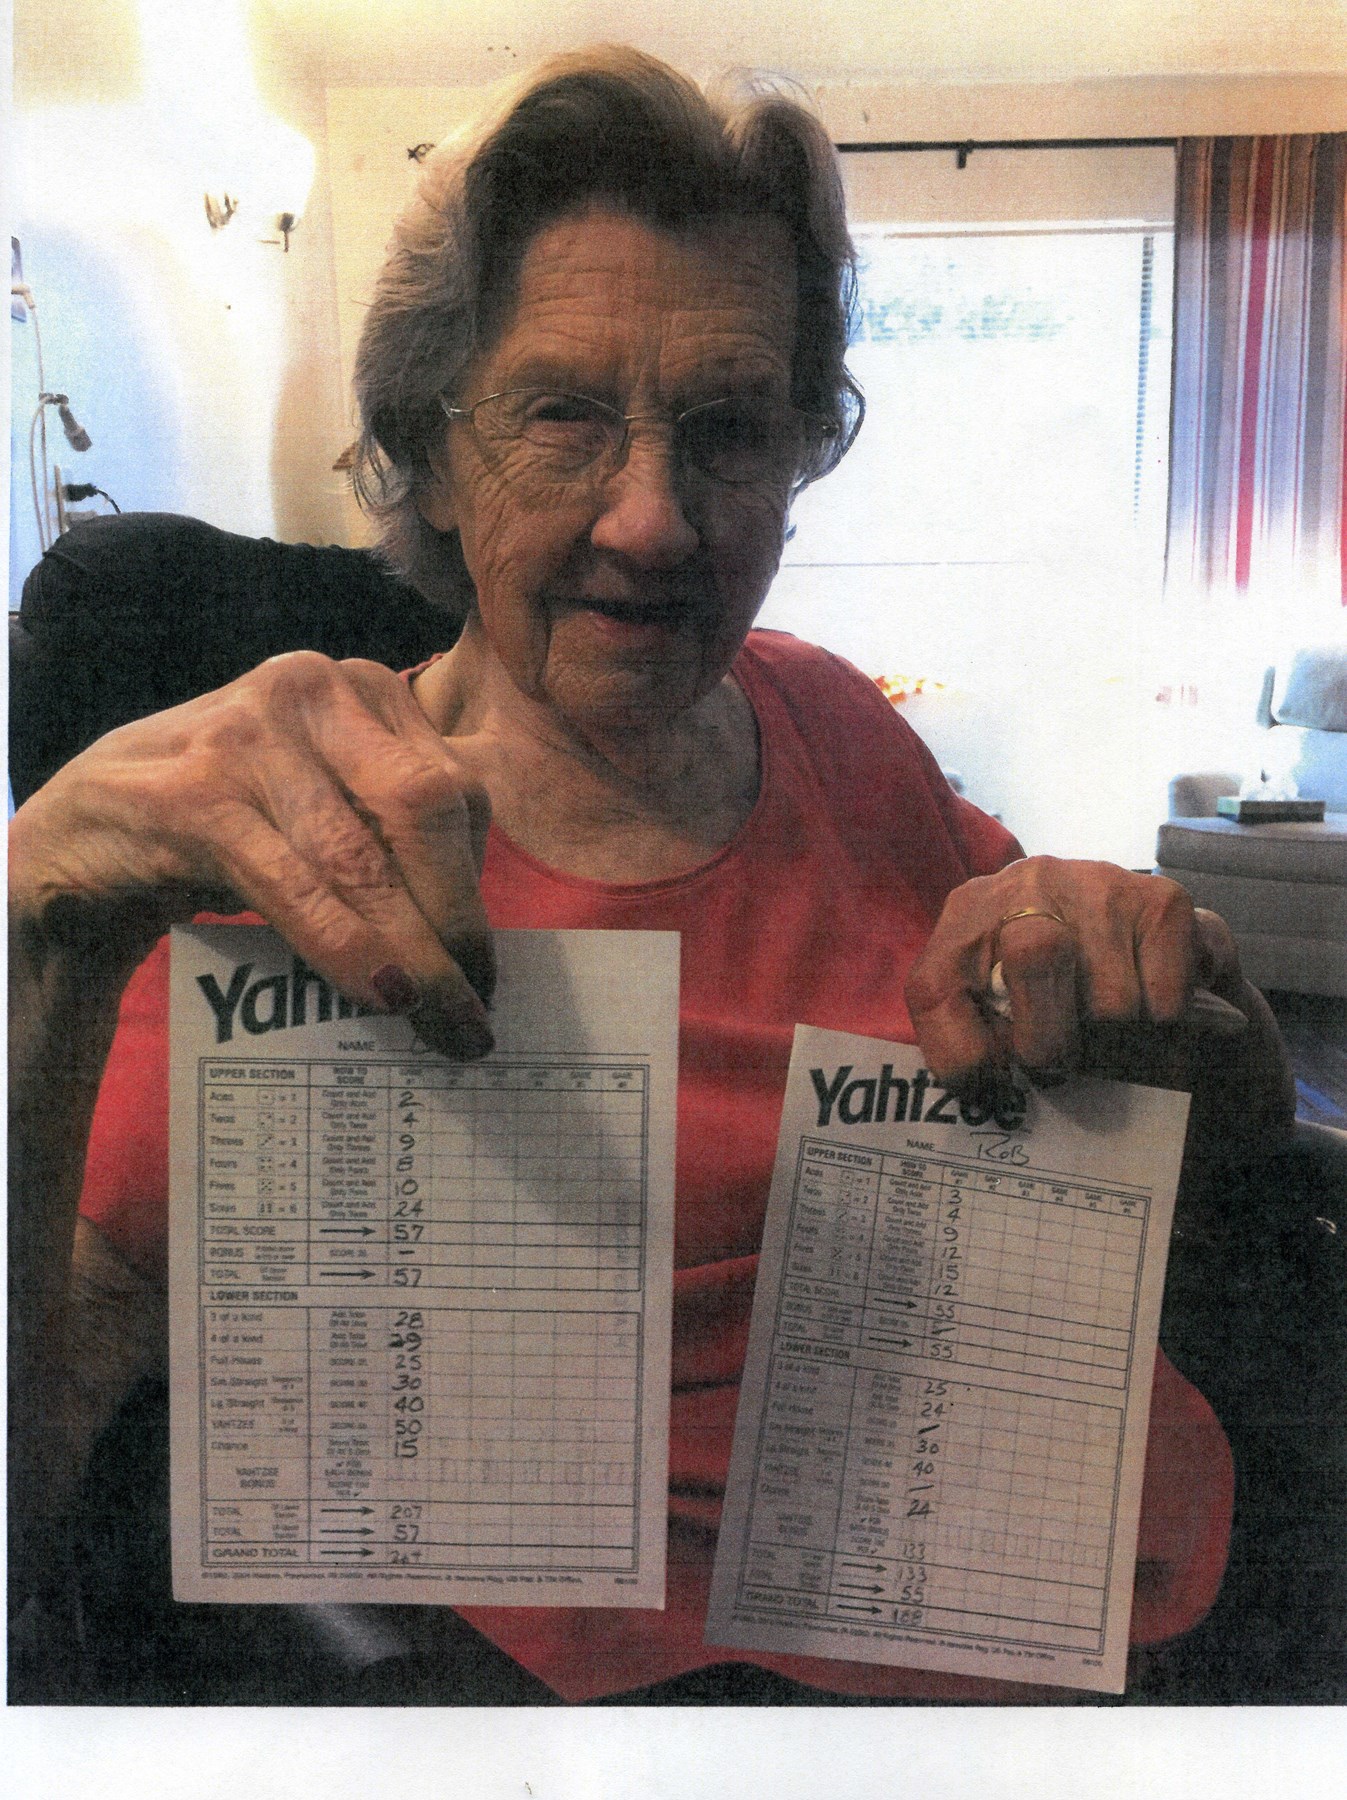 Yah
NAME
UPPER SECTION HOW TO SCORE GAME #1 GAME #2 GAME #3 GAME #4 GAME #5 GAME #6
Aces = 1 Count and Add Only Aces 2
Twos = 2 Count and Add Only Twos 4
Threes = 3 Count and Add Only Threes 9
Fours = 4 Count and Add Only Fours 8
Fives = 5 Count and Add Only Fives 10
Sixes = 6 Count and Add Only Sixes 24
TOTAL SCORE → 57
BONUS SCORE 35 –
TOTAL Of Upper Section → 57
LOWER SECTION
3 of a kind Add Total Of All Dice 28
4 of a kind Add Total Of All Dice 29
Full House SCORE 25 25
Sm. Straight Sequence of 4 SCORE 30 30
Lg. Straight Sequence of 5 SCORE 40 40
YAHTZEE 5 of a kind SCORE 50 50
Chance Score Total Of All 5 Dice 15
YAHTZEE BONUS ✓ FOR EACH BONUS
SCORE 100 PER ✓
TOTAL Of Lower Section → 207
TOTAL Of Upper Section → 57
GRAND TOTAL → 264
Yahtzee
NAME ROB
UPPER SECTION HOW TO SCORE GAME #1 GAME #2 GAME #3 GAME #4 GAME #5 GAME #6
Aces = 1 Count and Add Only Aces 3
Twos = 2 Count and Add Only Twos 4
Threes = 3 Count and Add Only Threes 9
Fours = 4 Count and Add Only Fours 12
Fives = 5 Count and Add Only Fives 15
Sixes = 6 Count and Add Only Sixes 12
TOTAL SCORE → 55
BONUS SCORE 35 –
TOTAL → 55
LOWER SECTION
3 of a kind Add Total Of All Dice 25
4 of a kind Add Total Of All Dice 24
Full House SCORE 25 –
Sm. Straight SCORE 30 30
Lg. Straight SCORE 40 40
YAHTZEE SCORE 50 –
Chance Score Total Of All 5 Dice 24
YAHTZEE BONUS ✓ FOR EACH BONUS
SCORE 100 PER ✓ 133
TOTAL → 133
TOTAL → 55
GRAND TOTAL → 188